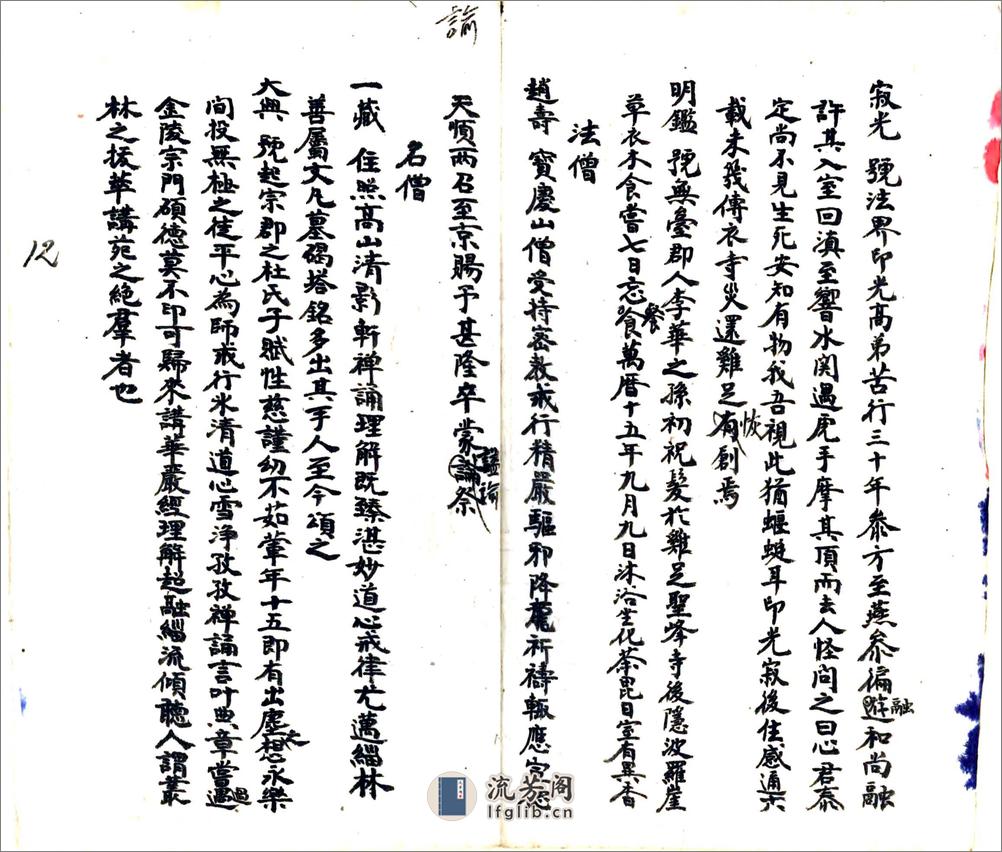 寂光　號法界印光高弟苦行三十年參方至燕參徧遊融和尚融
許其入室回滇至響水関遇虎手摩其頂而去人怪問之曰心君泰
定尚不見生死安知有物我吾視此猶蝘蜓耳印光寂後住感通六
載未幾傳衣寺災還雞足恢有創焉
明鑑　號無臺郡人李華之孫初祝髮於雞足聖峰寺後隱波羅崖
草衣木食嘗七日忘食餐萬曆十五年九月九日沐浴坐化荼毘日室有異香
法僧
趙壽　寶慶山僧受持密教戒行精嚴驅邪降龍祈禱輒應
天順两召至京賜予甚隆卒蒙論祭
諭
名僧
一藏　住照高山清影軒禅誦理解既臻湛妙道心戒律尤邁緇林
善屬文凡墓碣塔銘多出其手人至今頌之
大興　號起宗郡之杜氏子賦性慈謹幼不茹葷年十五即有出塵之想永樂
間投無極之徒平心為師戒行氷清道心雪浄孜孜禅誦言叶典章嘗遇過
金陵宗門碩德莫不印可歸來講華嚴經理解超融緇流傾聽人謂叢
林之拔萃講苑之絶羣者也
12
流芳阁
lfglib.cn